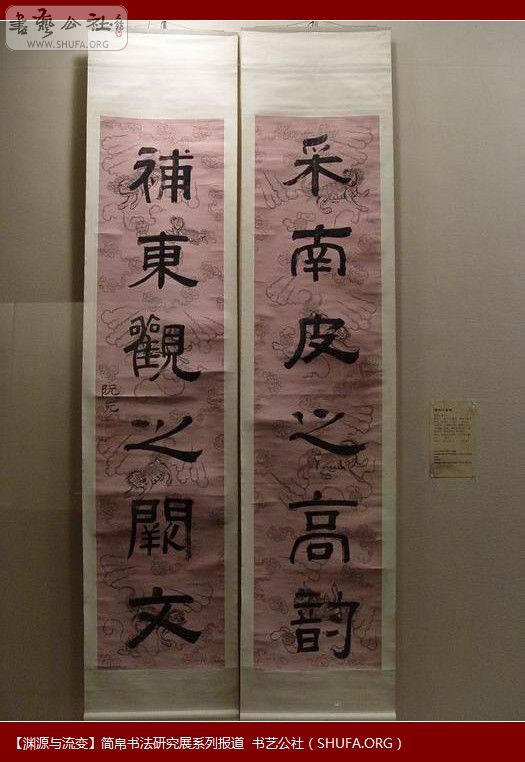 书艺公社
WWW.SHUFA.ORG
采南皮之高韵
補東觀之闕文
阮元
【渊源与流变】简帛书法研究展系列报道 书艺公社（SHUFA.ORG）